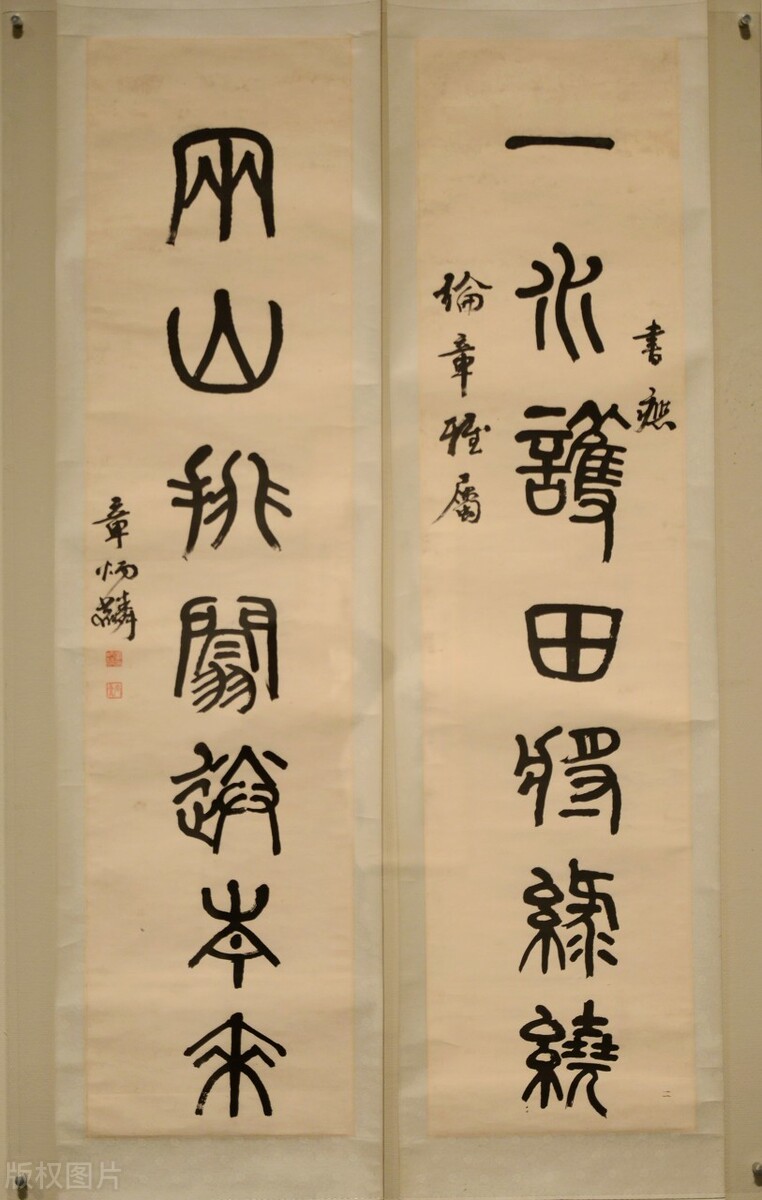 一水護田將綠繞
書
章雅屬
兩山排闒送青來
章炳麟
版权图片